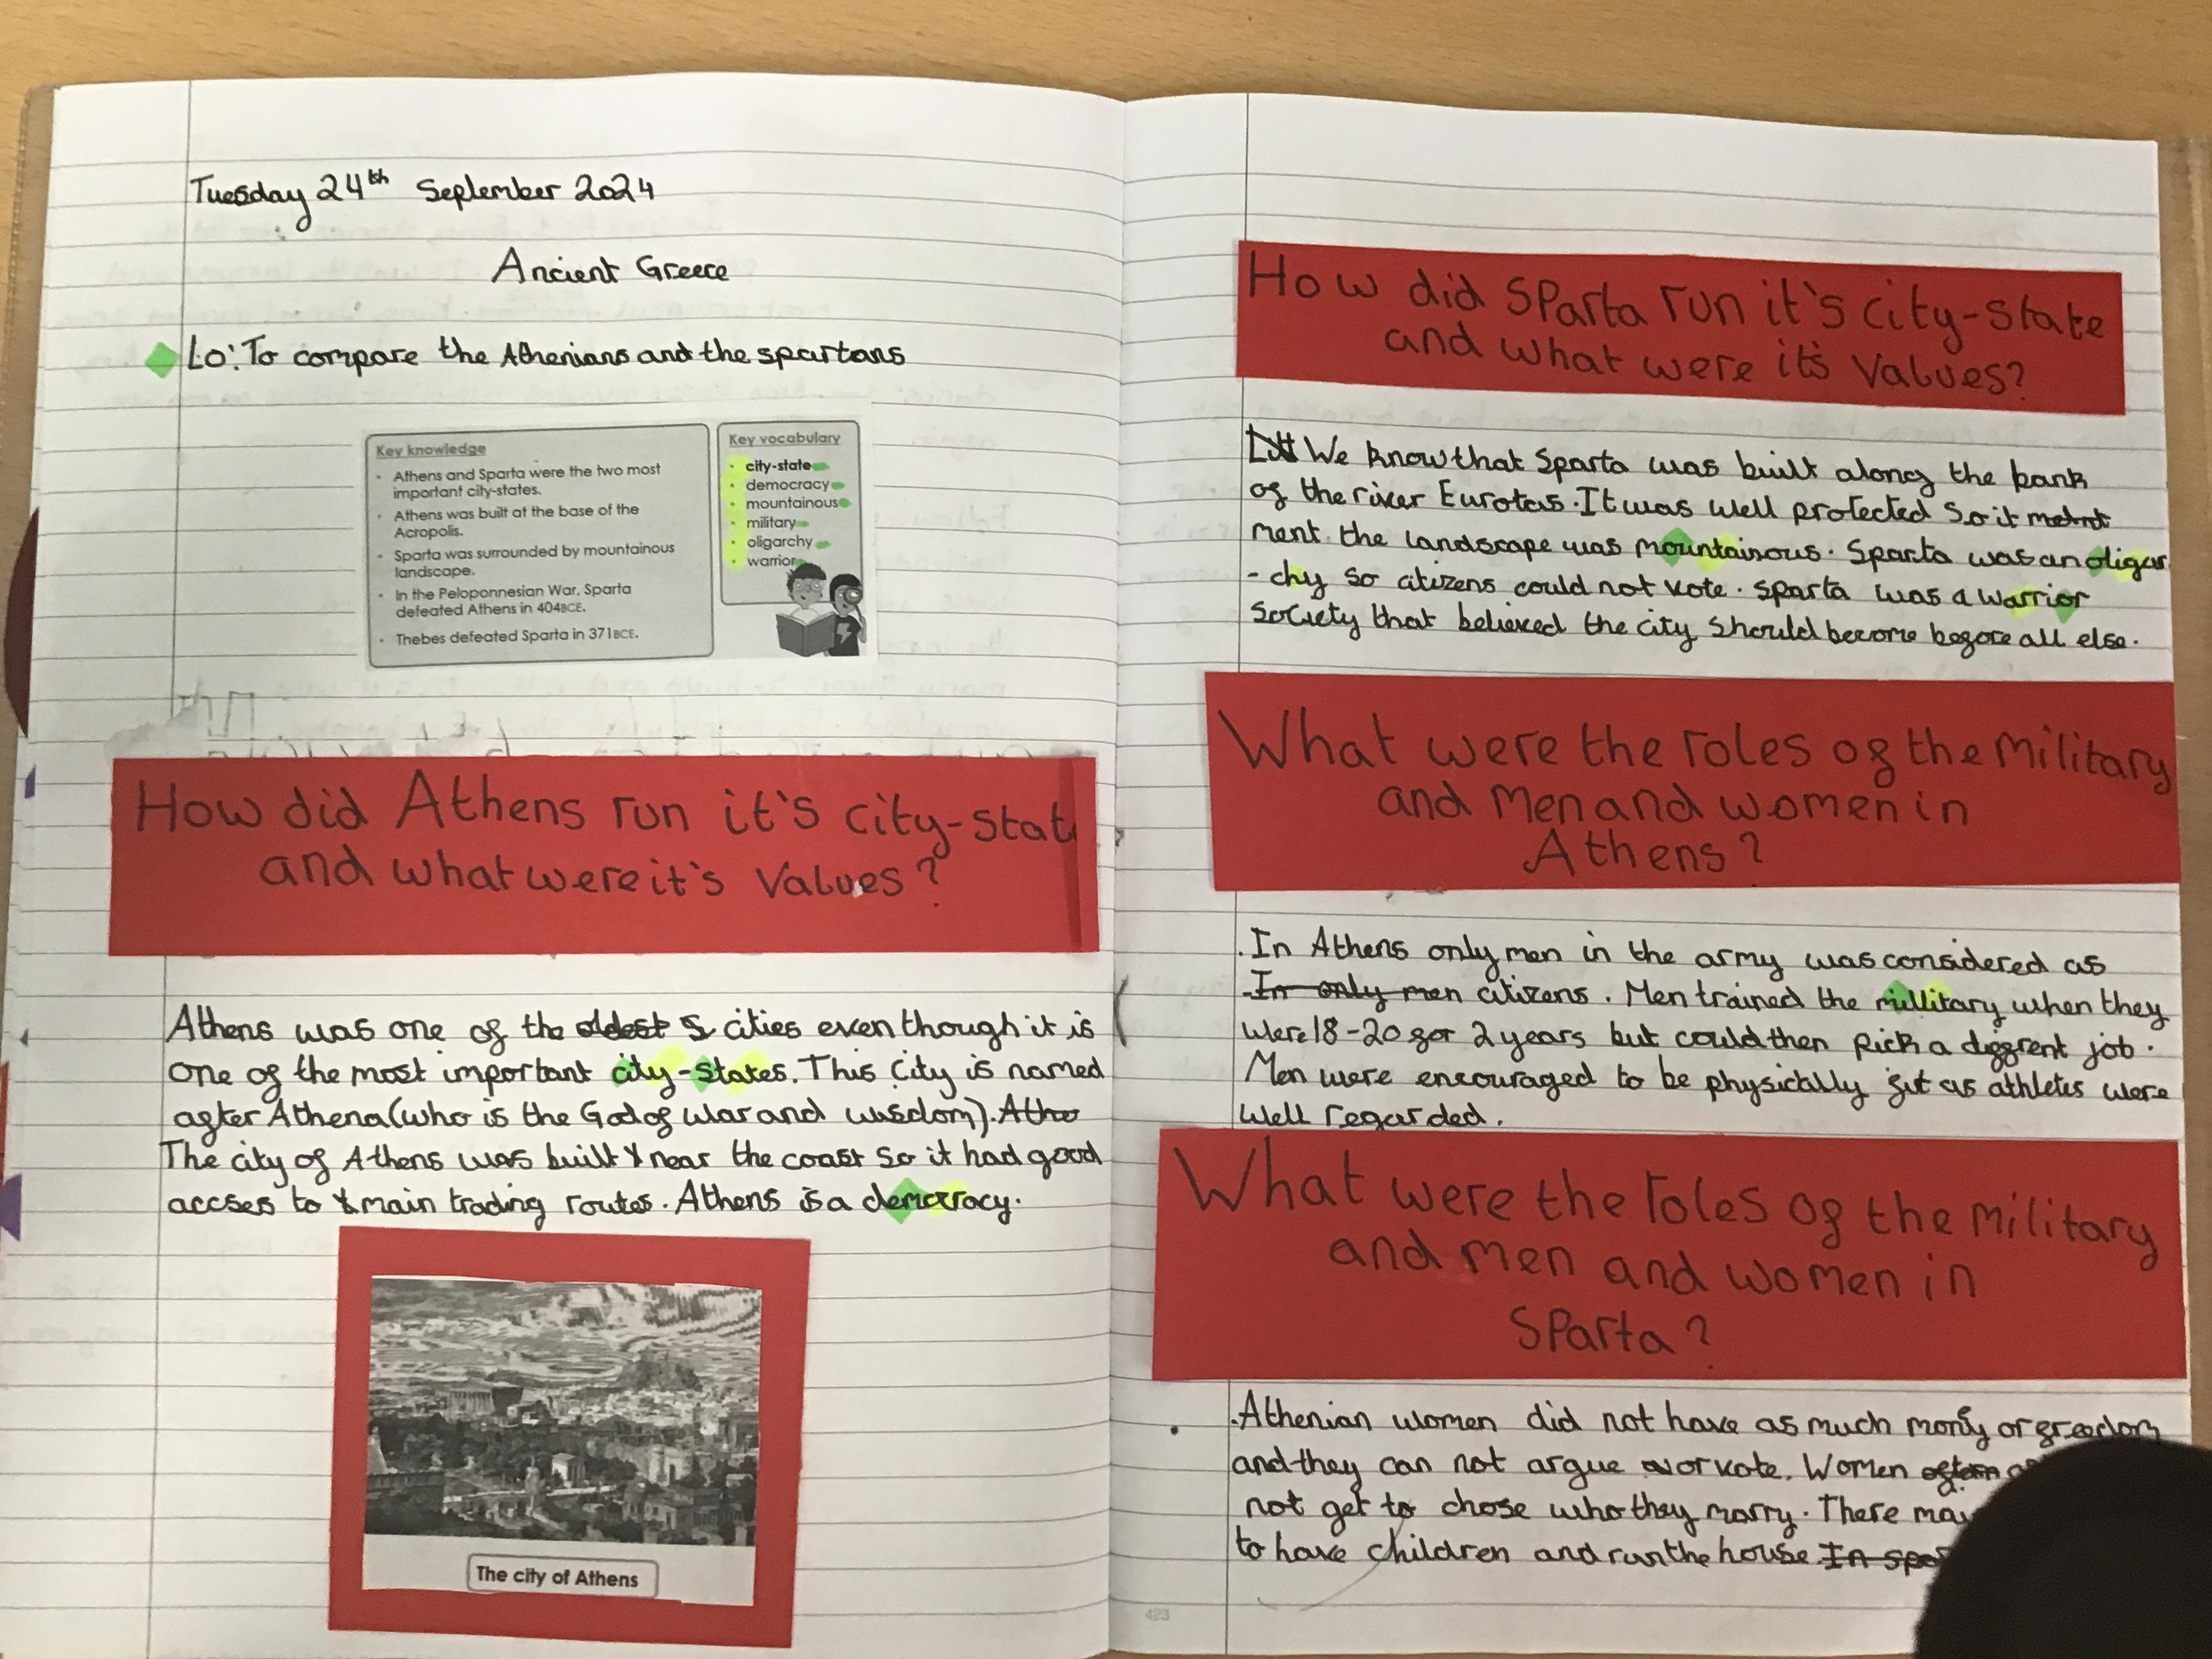 Tuesday 24th September 2024
Ancient Greece
Lo: To compare the Athenians and the spartans
Key knowledge
• Athens and Sparta were the two most
important city-states.
• Athens was built at the base of the
Acropolis.
• Sparta was surrounded by mountainous
landscape.
• In the Peloponnesian War, Sparta
defeated Athens in 404BCE.
• Thebes defeated Sparta in 371BCE.
Key vocabulary
• city-state
• democracy
• mountainous
• military
• oligarchy
• warrior
How did Athens run it's city-stat
and what were it's values?
Athens was one of the oldest cities even though it is
one of the most important city-states. This city is named
after Athena (who is the God of war and wisdom). Athe
The city of Athens was built near the coast so it had good
accses to main trading routes. Athens is a democracy.
The city of Athens
How did Sparta run it's city-state
and what were it's values?
We know that Sparta was built along the bank
of the river Eurotas. It was well protected so it
ment the landscape was mountainous. Sparta was an oligar
-chy so citizens could not vote. Sparta was a warrior
society that believed the city should become before all else.
What were the roles of the military
and men and women in
Athens?
. In Athens only men in the army was considered as
In only men citizens. Men trained the millitary when they
were 18-20 for 2 years but could then pick a diffrent job.
Men were encouraged to be physically fit as athletes were
well regarded.
What were the roles of the military
and men and women in
Sparta?
. Athenian women did not have as much mony or freedom
and they can not argue or vote. Women often
not get to chose who they marry. There
to have children and run the house. In
423